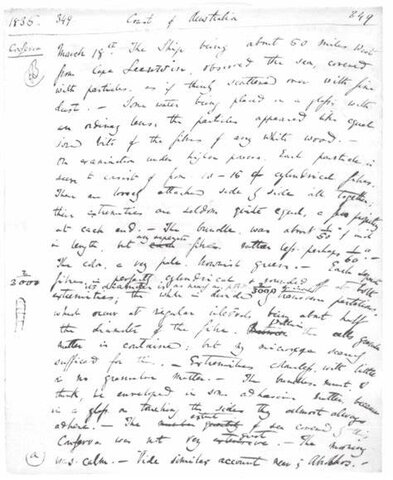 1836. 349 Coast of Australia 349
Conferva March 18th. The Ship being about 50 miles West
from Cape Leeuwin, observed the sea, covered
with particles, as if thinly scattered over with fine
dust. — Some water being placed in a glass, with
an ordinary lens the particles appeared like equal
sized bits of the fibres of any white wood. —
On examination under higher powers, each particle is
seen to consist of from 10 - 15 of cylindrical fibres.
These are loosely attached side by side all together;
their extremities are seldom quite equal, a few projecting
at each end. — The bundle was about 1/50 of inch
in length, but any separate fibre rather less, perhaps 1/60. —
The color, a very pale brownish green. — Each separate
fibre is perfectly cylindrical rounded at both
2/3000 extremities; its diameter is as nearly as possible 2/3000 of inch:
the whole is divided by transverse partitions,
which occur at regular intervals, being about half
the diameter of the fibre. Within the cells granular
matter is contained; but my microscope scarcely
sufficed for this. — Extremities colourless, with little
or no granular matter. — The bundles must I
think, be enveloped in some adhesive matter because
in a glass on touching the sides they almost always
adhere. — The extent of sea covered by this
Conferva was not very great. — The morning
(a) was calm. — Vide similar account near Abrolhos. —